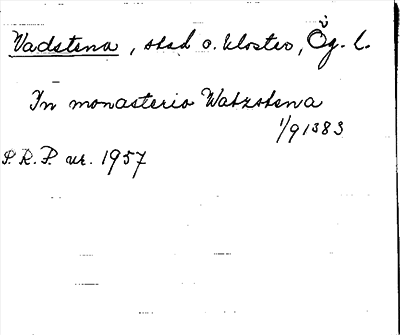 Vadstena, stad o. kloster, Ög. l.
In monasterio Watzstena
1/9 1383
S.R.P. nr. 1957